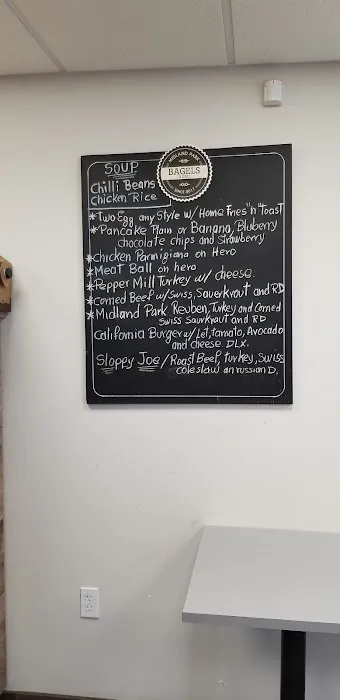 SOUP
Chilli Beans
Chicken Rice
MIDLAND PARK
BAGELS
SINCE 2017
*Two Egg any Style w/ Home Fries "n" Toast
*Pancake Plain or Banana, Bluberry
chocolate chips and Strawberry
*Chicken Parmigiana on Hero
*Meat Ball on hero
*Pepper Mill Turkey w/ cheese.
*corned Beef w/ Swiss, Sauerkrout and RD
*Midland Park Reuben, Turkey and Corned
Swiss Saurkraut and RD
California Burger w/ Let, tomato, Avocado
and cheese DLX.
Sloppy Joe / Roast Beef, turkey, Swiss
coleslaw an russian D,